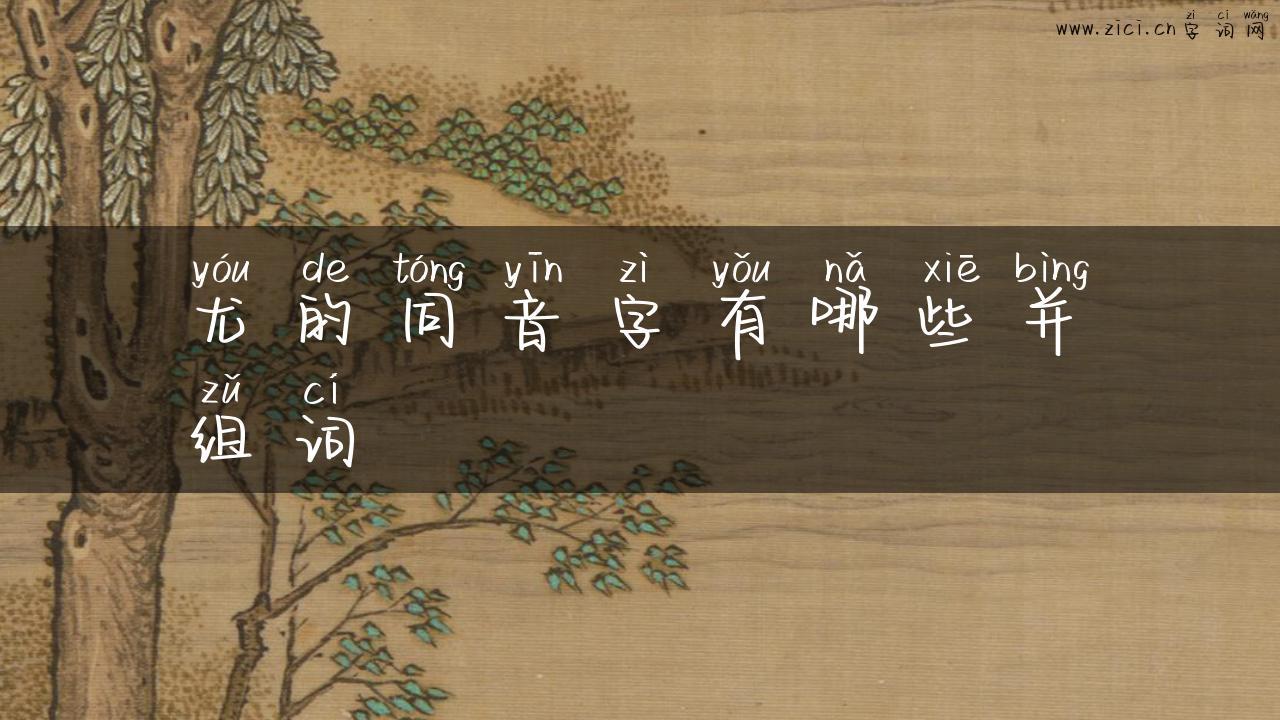 zì cí wǎng
www.zici.cn 字词网
yóu de tóng yīn zì yǒu nǎ xiē bìng
尤的同音字有哪些并
zǔ cí
组词